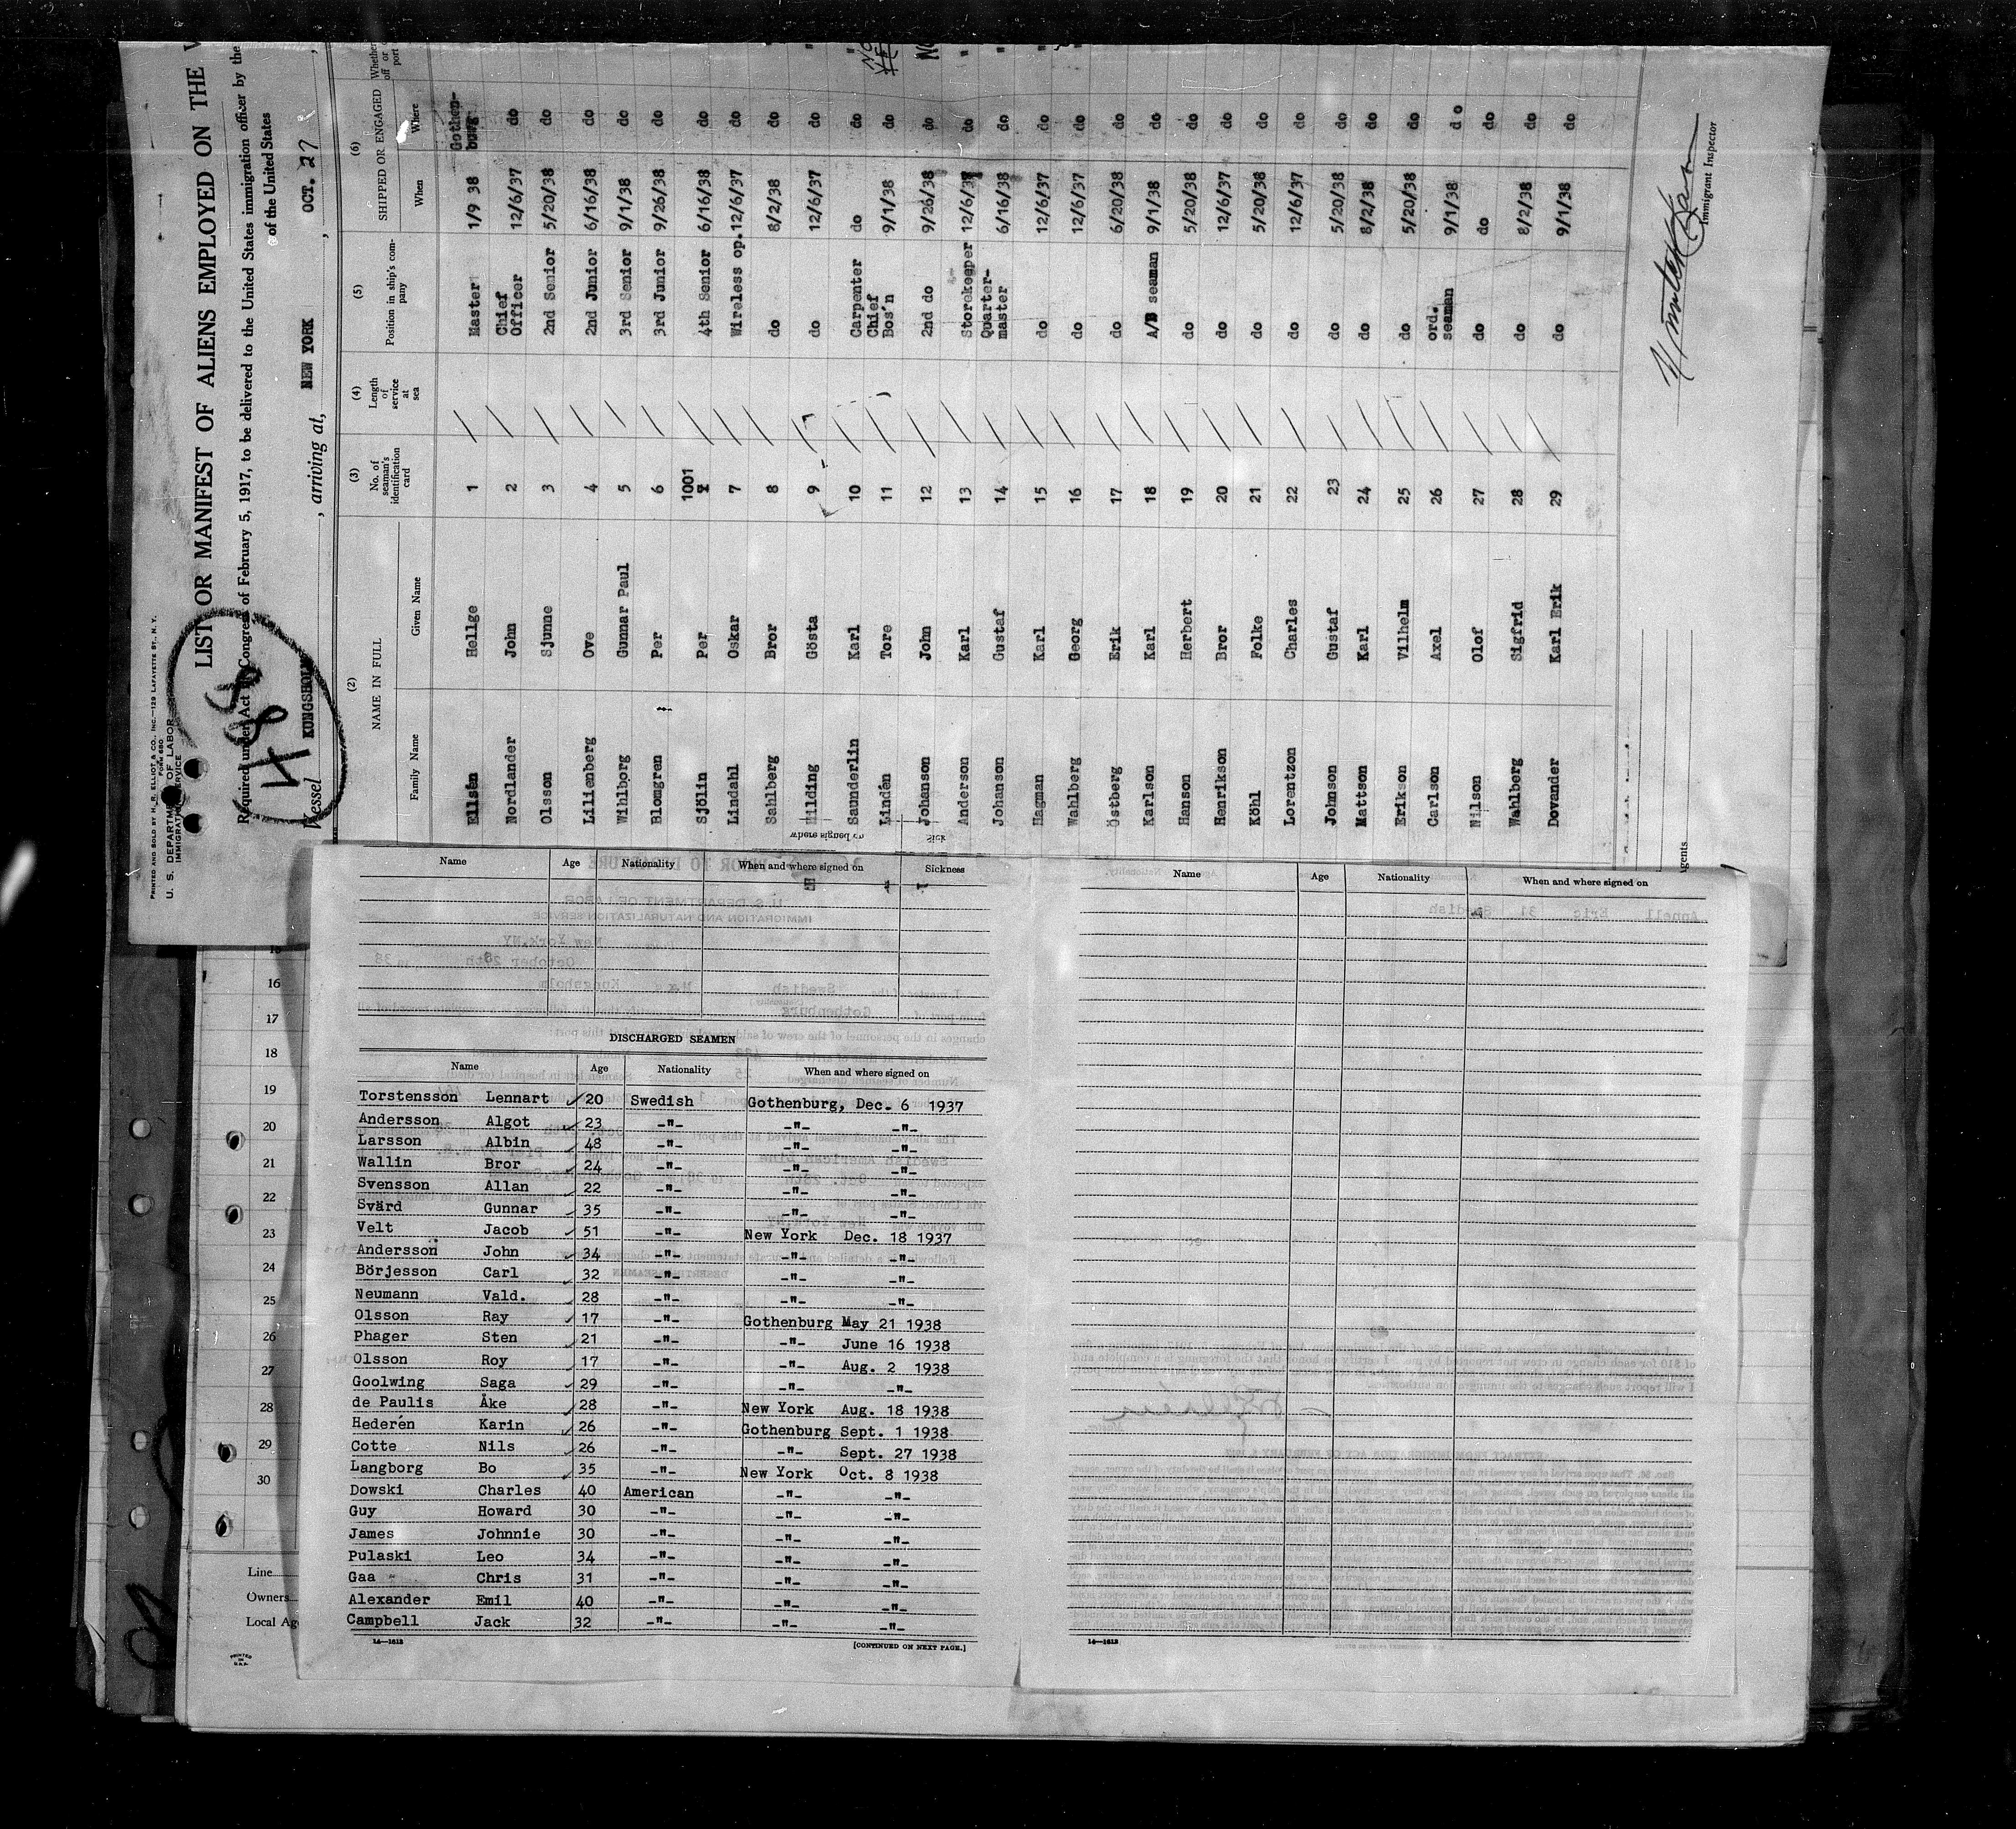 PRINTED AND SOLD BY M. R. ELLIOT & CO., INC.—129 LAFAYETTE ST., N. Y.
FORM 680
U. S. DEPARTMENT OF LABOR
IMMIGRATION SERVICE
488
LIST OR MANIFEST OF ALIENS EMPLOYED ON THE
Required under Act of Congress of February 5, 1917, to be delivered to the United States immigration officer by the
of the United States
Vessel KUNGSHOLM, arriving at, NEW YORK, OCT. 27,
(2) (3) (4) (5) (6)
NAME IN FULL No. of seaman's identification card Length of service at sea Position in ship's company SHIPPED OR ENGAGED
Family Name Given Name When Where
Ellsén Hellge 1 Master 1/9 38 Gothenburg
Nordlander John 2 Chief Officer 12/6/37 do
Olsson Sjunne 3 2nd Senior 5/20/38 do
Lilienberg Ove 4 2nd Junior 6/16/38 do
Wihlborg Gunnar Paul 5 3rd Senior 9/1/38 do
Blomgren Per 6 3rd Junior 9/26/38 do
Sjölin Per 1001 4th Senior 6/16/38 do
Lindahl Oskar 7 Wireless op. 12/6/37 do
Sahlberg Bror 8 do 8/2/38 do
Hilding Gösta 9 do 12/6/37 do
Saunderlin Karl 10 Carpenter do do
Lindén Tore 11 Chief Bos'n 9/1/38 do
Johanson John 12 2nd do 9/26/38 do
Anderson Karl 13 Storekeeper 12/6/37 do
Johanson Gustaf 14 Quartermaster 6/16/38 do
Hagman Karl 15 do 12/6/37 do
Wahlberg Georg 16 do 12/6/37 do
Östberg Erik 17 do 6/20/38 do
Karlson Karl 18 A/B seaman 9/1/38 do
Hanson Herbert 19 do 5/20/38 do
Henrikson Bror 20 do 12/6/37 do
Köhl Folke 21 do 5/20/38 do
Lorentzon Charles 22 do 12/6/37 do
Johnson Gustaf 23 do 5/20/38 do
Mattson Karl 24 do 8/2/38 do
Erikson Vilhelm 25 do 5/20/38 do
Carlson Axel 26 ord. seaman 9/1/38 do
Nilson Olof 27 do do do
Wahlberg Sigfrid 28 do 8/2/38 do
Dovander Karl Erik 29 do 9/1/38 do
Immigrant Inspector
Name Age Nationality When and where signed on Sickness
DISCHARGED SEAMEN
Name Age Nationality When and where signed on
Torstensson Lennart 20 Swedish Gothenburg, Dec. 6 1937
Andersson Algot 23 -"- -"- -"-
Larsson Albin 48 -"- -"- -"-
Wallin Bror 24 -"- -"- -"-
Svensson Allan 22 -"- -"- -"-
Svärd Gunnar 35 -"- -"- -"-
Velt Jacob 51 -"- New York Dec. 18 1937
Andersson John 34 -"- -"- -"-
Börjesson Carl 32 -"- -"- -"-
Neumann Vald. 28 -"- -"- -"-
Olsson Ray 17 -"- Gothenburg May 21 1938
Phager Sten 21 -"- -"- June 16 1938
Olsson Roy 17 -"- -"- Aug. 2 1938
Goolwing Saga 29 -"- -"- -"-
de Paulis Åke 28 -"- New York Aug. 18 1938
Hederén Karin 26 -"- Gothenburg Sept. 1 1938
Cotte Nils 26 -"- -"- Sept. 27 1938
Langborg Bo 35 -"- New York Oct. 8 1938
Dowski Charles 40 American -"- -"-
Guy Howard 30 -"- -"- -"-
James Johnnie 30 -"- -"- -"-
Pulaski Leo 34 -"- -"- -"-
Gaa Chris 31 -"- -"- -"-
Alexander Emil 40 -"- -"- -"-
Campbell Jack 32 -"- -"- -"-
14—1613
[CONTINUED ON NEXT PAGE.]
Name Age Nationality When and where signed on
14—1613
16
17
18
19
20
21
22
23
24
25
26
27
28
29
30
Line
Owners
Local Ag
PRINTED IN U.S.A.